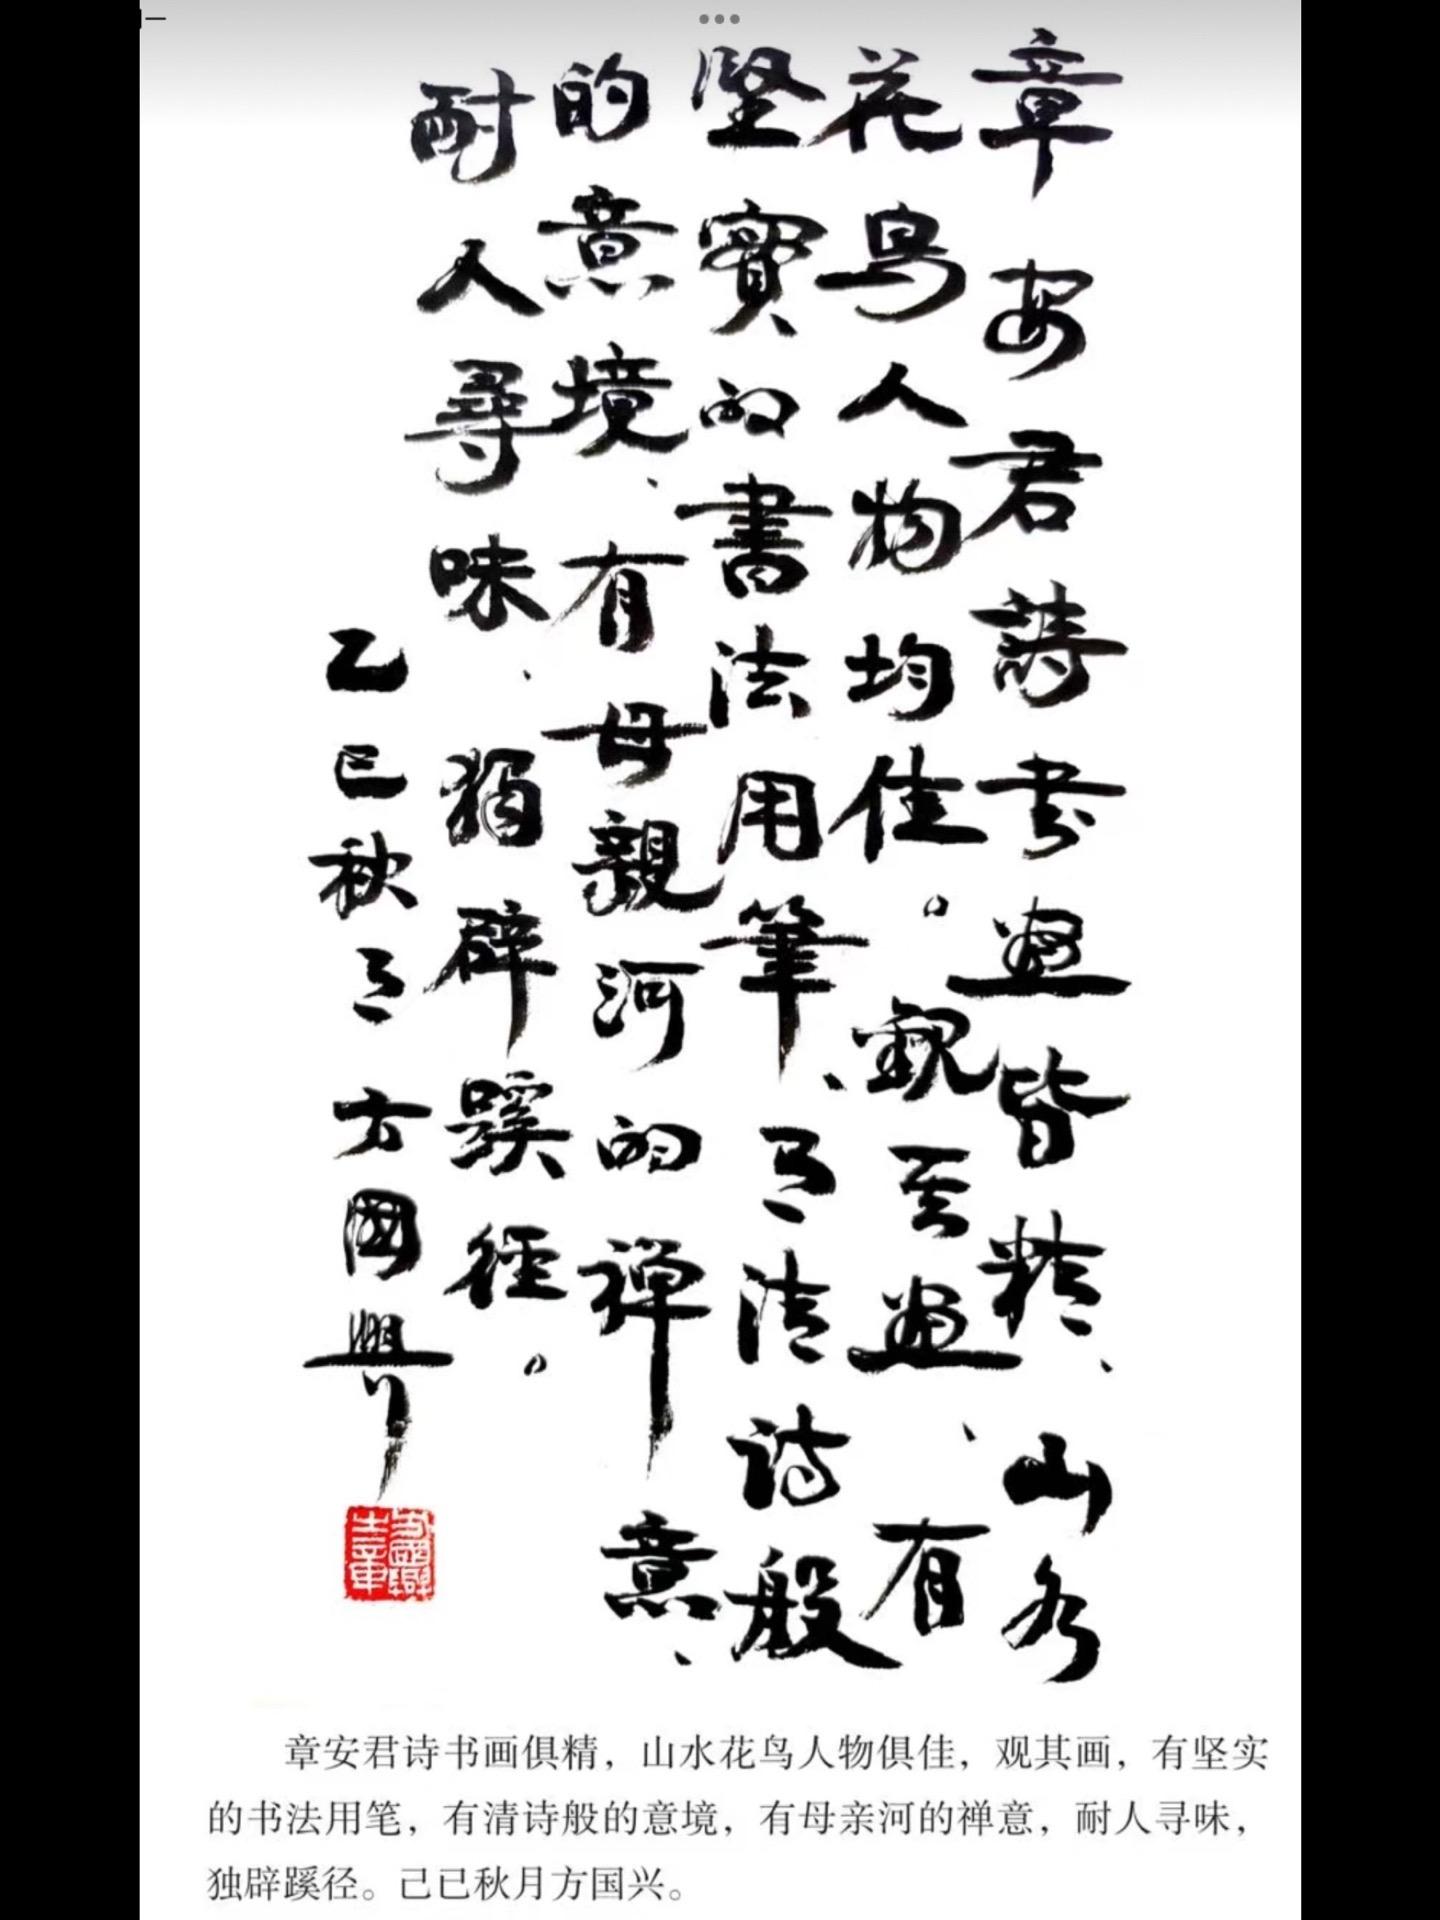 章安君詩书画皆精、山水
花鸟人物均佳。观其画、有
坚實的書法用筆、有清诗般
的意境、有母親河的禅意、
耐人尋味、独辟蹊径。
乙巳秋月方國興
章安君诗书画俱精，山水花鸟人物俱佳，观其画，有坚实
的书法用笔，有清诗般的意境，有母亲河的禅意，耐人寻味，
独辟蹊径。己巳秋月方国兴。